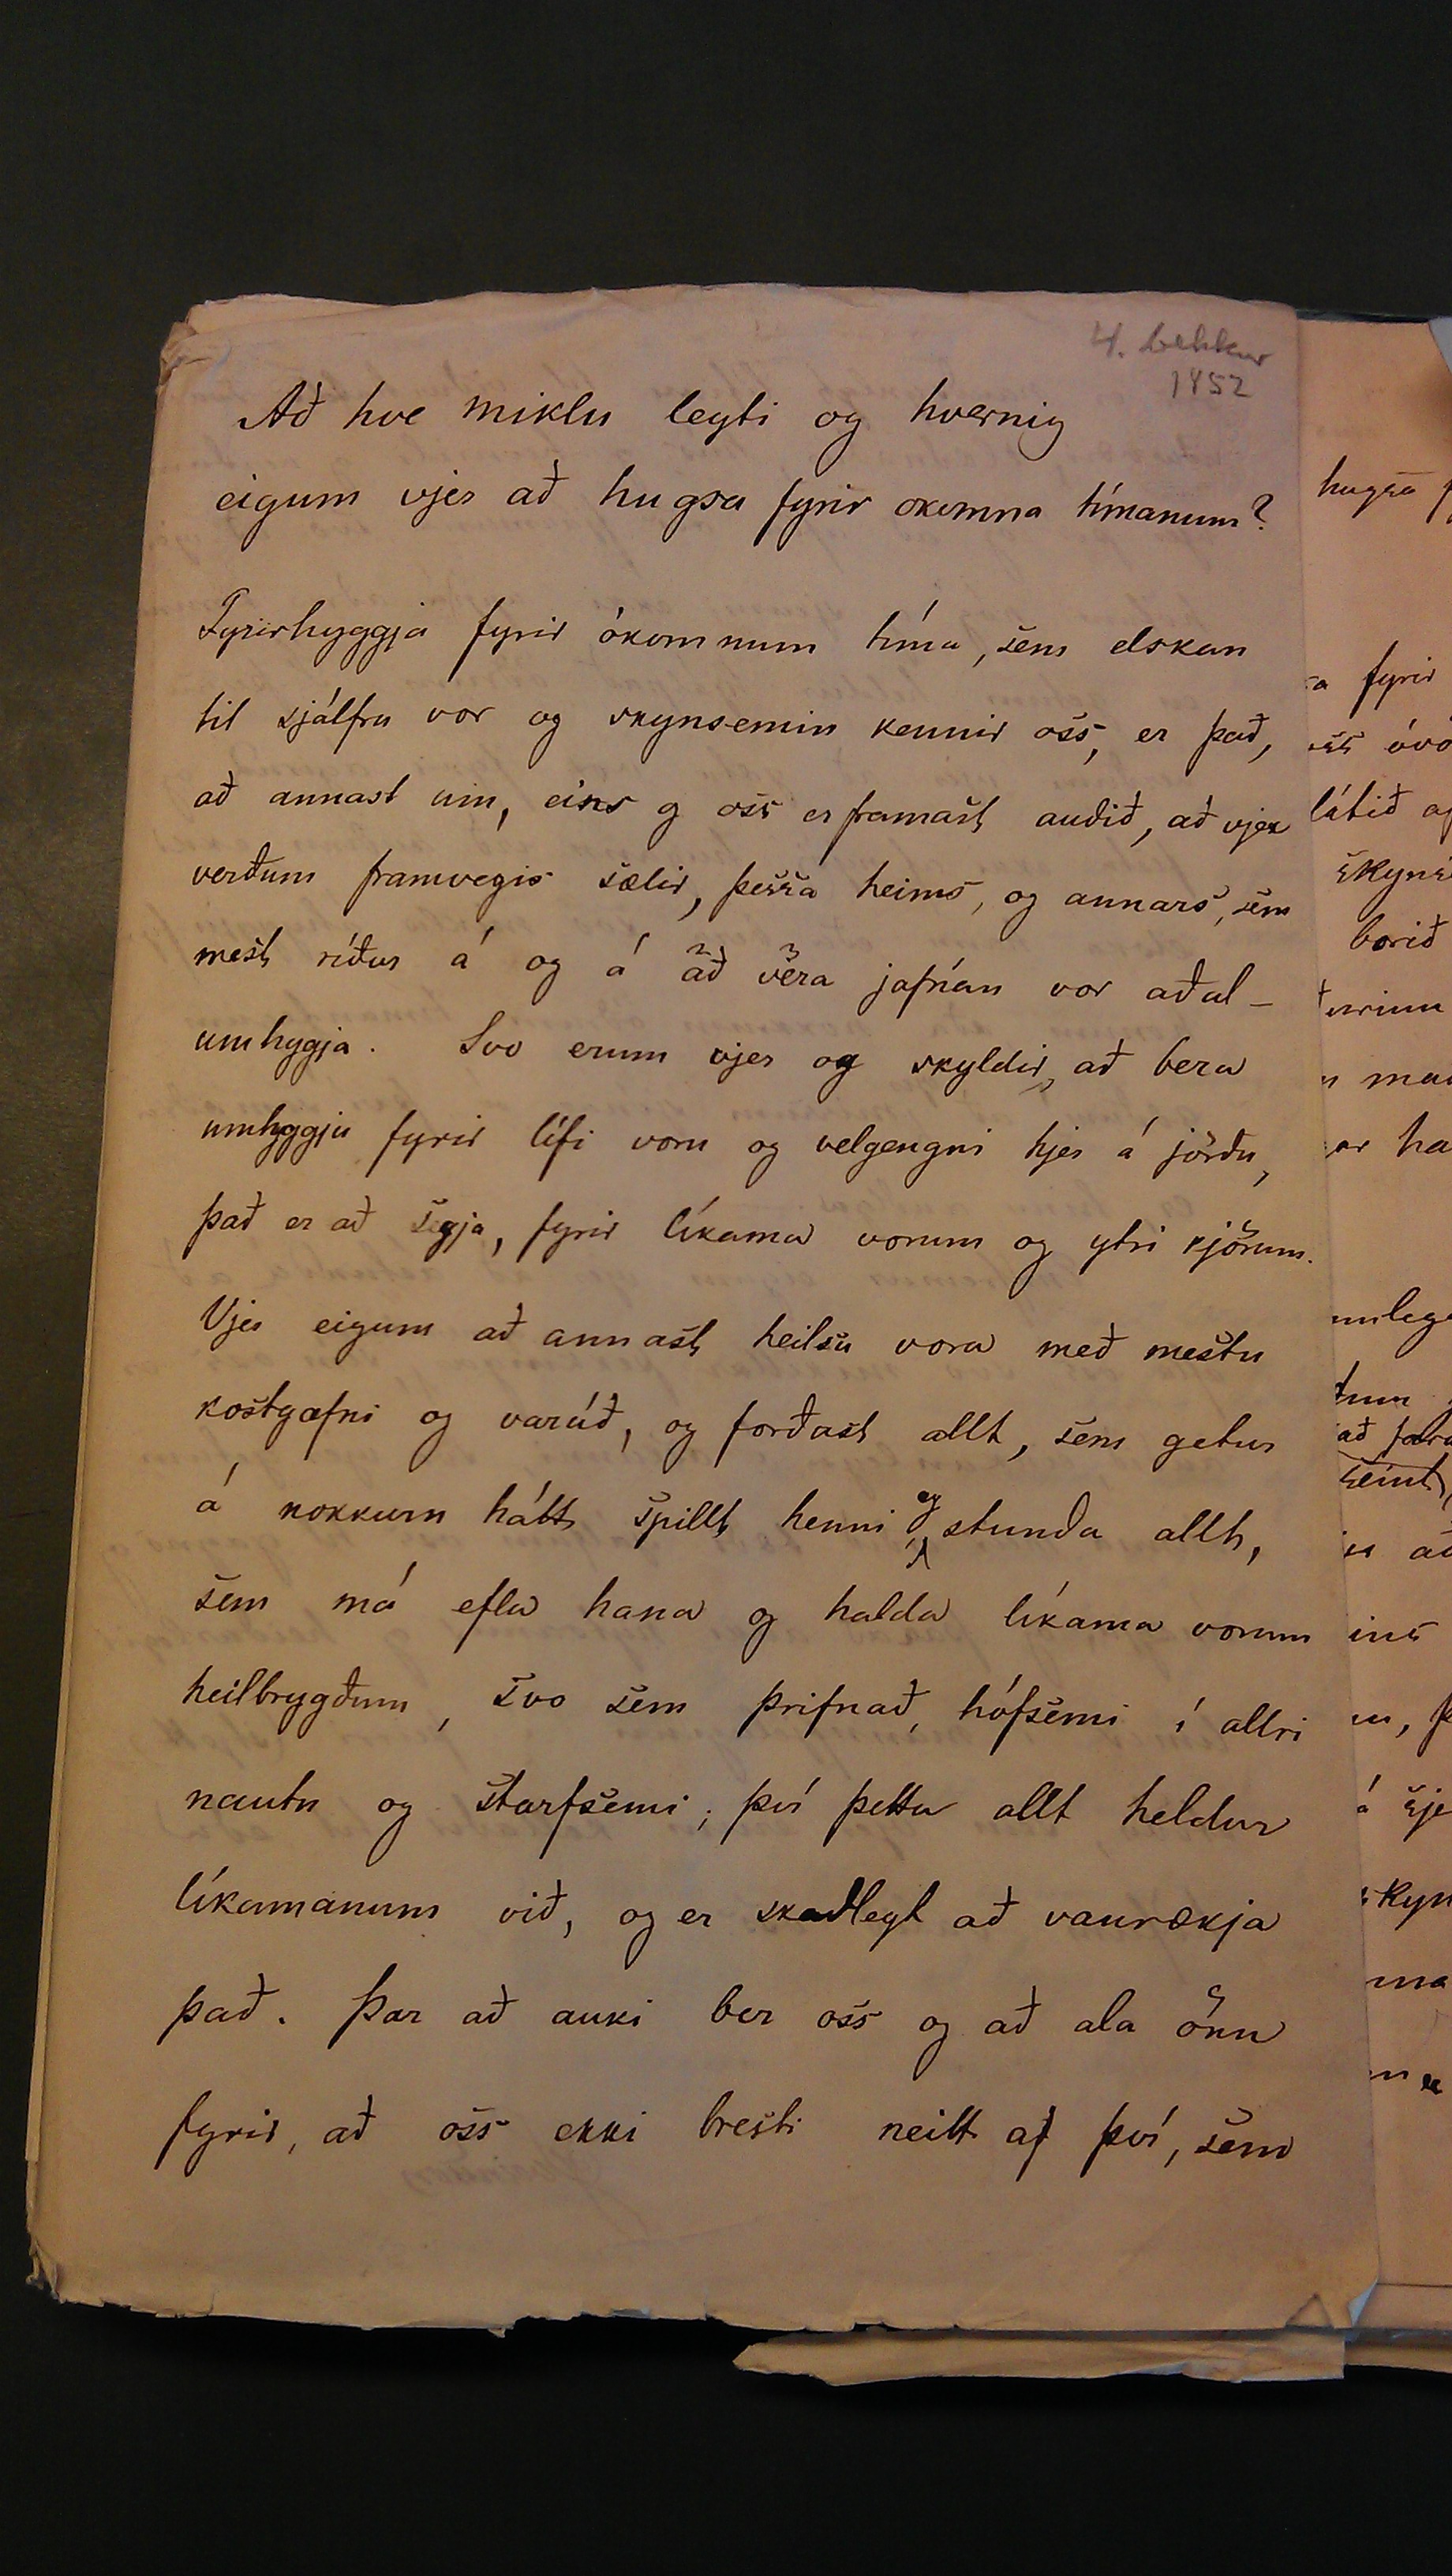 4. bekkur
1852
Að hve miklu leyti og hvernig
eigum vjer að hugsa fyrir okomna tímanum?
Fyrirhyggja fyrir ókomnum tíma, sem elskan
til sjálfra vor og skynsemin kennir oss, er það,
að annast um, eins og oss er framast auðið, að vjer
verðum framvegis sælir, þessa heims, og annars, sem
mest ríður á og á að vera jafnan vor aðal-
umhygja. Svo erum vjer og skyldir, að bera
umhyggju fyrir lífi voru og velgengni hjer á jörðu,
það er að segja, fyrir líkama vorum og ytri kjörum.
Vjer eigum að annast heilsu vora með mestu
kostgæfni og varúð, og forðast allt, sem getur
á nokkurn hátt spillt henni og stunda allt,
sem má efla hana og halda líkama vorum
heilbrygðum, svo sem þrifnað, hófsemi í allri
nautn og starfsemi; því þetta allt heldur
líkamanum við, og er skaðlegt að vanrækja
það. Þar að auki ber oss og að ala önn
fyrir, að oss ekki bresti neitt af því, sem
hugsa
fyrir
óvó
látið
skyns
borið